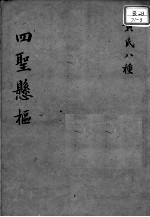 黄氏八種
四聖懸樞